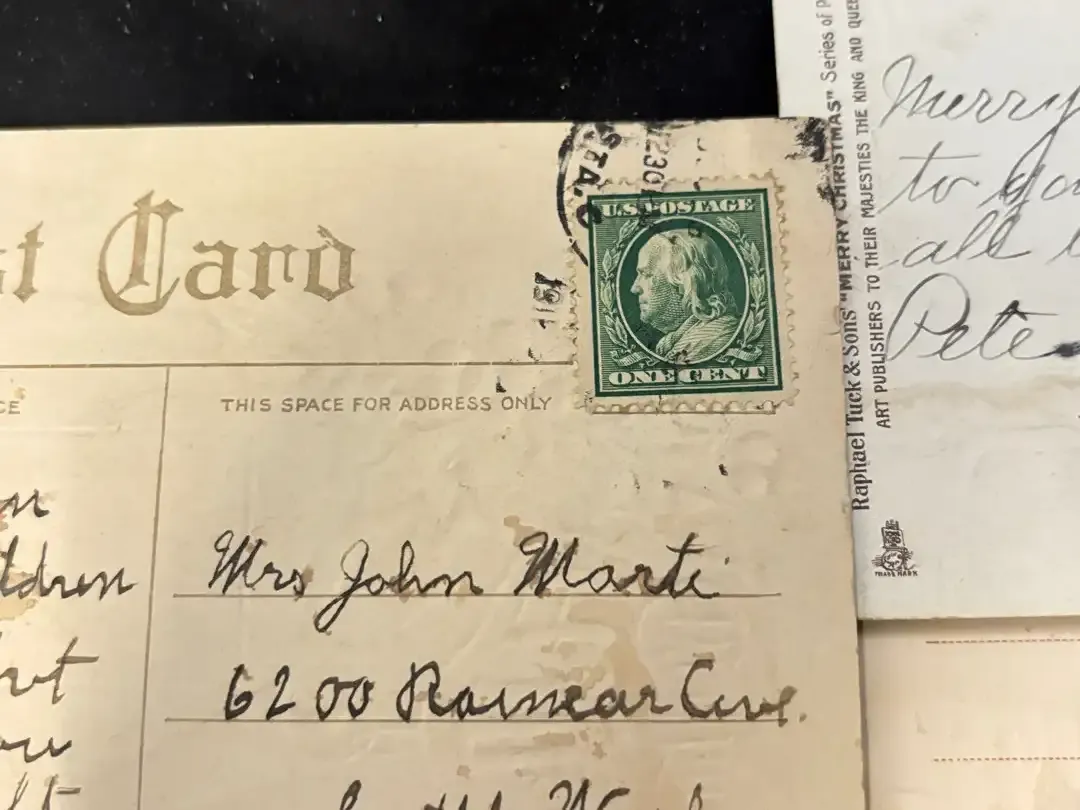 Card
STA. C
1230
1911
U.S. POSTAGE
ONE CENT
CE
THIS SPACE FOR ADDRESS ONLY
Mrs John Marti
6200 Rainear Ave.
ldren
Raphael Tuck & Sons' "MERRY CHRISTMAS" Series of P
ART PUBLISHERS TO THEIR MAJESTIES THE KING AND QUEE
TRADE MARK
Merry
to you
all
Pete